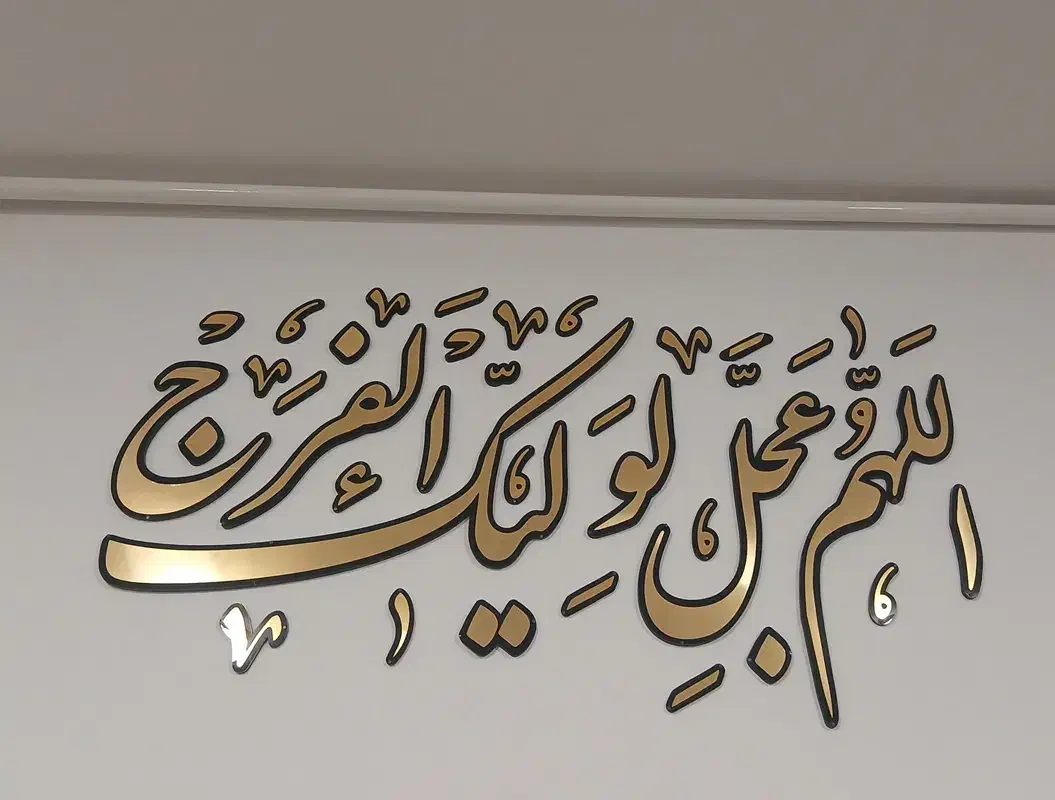 اَللّٰهُمَّ عَجِّلْ لِوَلِيِّكَ الْفَرَجَ